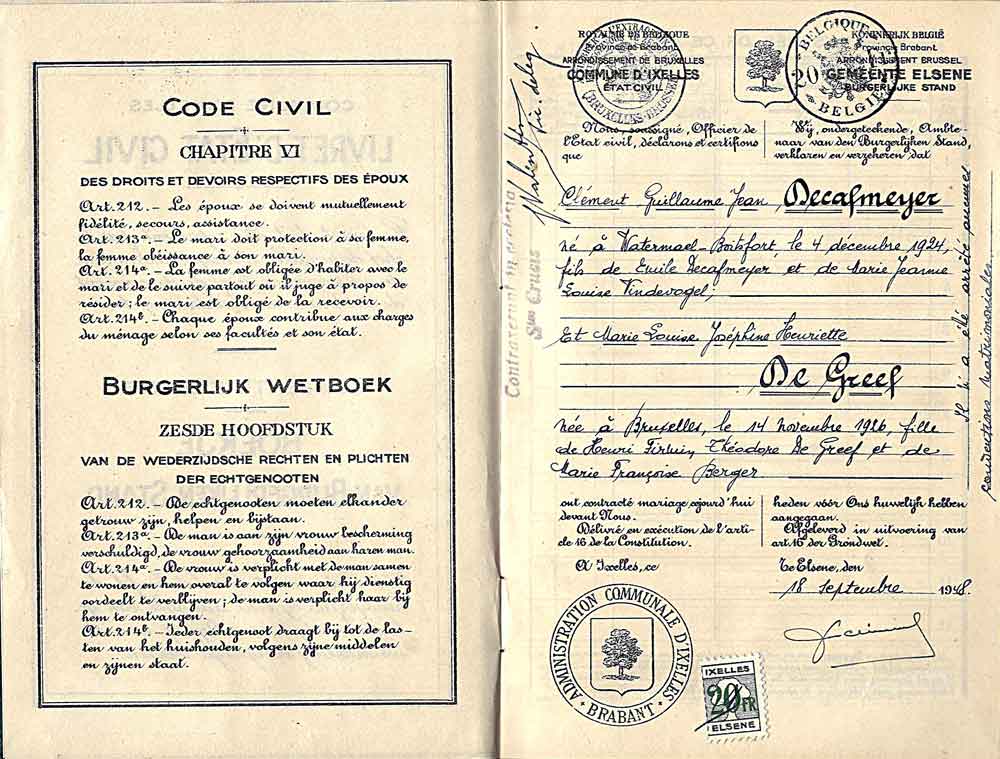 CODE CIVIL
CHAPITRE VI
DES DROITS ET DEVOIRS RESPECTIFS DES ÉPOUX
Art. 212. – Les époux se doivent mutuellement
fidélité, secours, assistance.
Art. 213ᵃ. – Le mari doit protection à sa femme,
la femme obéissance à son mari.
Art. 214ᵃ. – La femme est obligée d'habiter avec le
mari et de le suivre partout où il juge à propos de
résider; le mari est obligé de la recevoir.
Art. 214ᵇ. – Chaque époux contribue aux charges
du ménage selon ses facultés et son état.
BURGERLIJK WETBOEK
ZESDE HOOFDSTUK
VAN DE WEDERZIJDSCHE RECHTEN EN PLICHTEN
DER ECHTGENOOTEN
Art. 212. – De echtgenooten moeten elkander
getrouw zijn, helpen en bijstaan.
Art. 213ᵃ. – De man is aan zijn vrouw bescherming
verschuldigd, de vrouw gehoorzaamheid aan haren man.
Art. 214ᵃ. – De vrouw is verplicht met de man samen
te wonen en hem overal te volgen waar hij dienstig
oordeelt te verblijven; de man is verplicht haar bij
hem te ontvangen.
Art. 214ᵇ. – Ieder echtgenoot draagt bij tot de las-
ten van het huishouden, volgens zijne middelen
en zijnen staat.
ROYAUME DE BELGIQUE
Province de Brabant
ARRONDISSEMENT DE BRUXELLES
COMMUNE D'IXELLES
ÉTAT CIVIL
KONINKRIJK BELGIË
Provincie Brabant
ARRONDISSEMENT BRUSSEL
GEMEENTE ELSENE
BURGERLIJKE STAND
BELGIQUE
20
BELGIË
Nous, soussigné, Officier de
l'État civil, déclarons et certifions
que
Wij, ondergeteekende, Ambte-
naar van den Burgerlijken Stand,
verklaren en verzekeren dat
Clément Guillaume Jean Decafmeyer
né à Watermael-Boitsfort, le 4 décembre 1924,
fils de Emile Decafmeyer et de Marie Jeanne
Louise Vindevogel,
Et Marie Louise Joséphine Henriette
De Greef
née à Bruxelles, le 14 novembre 1926, fille
de Henri Firmin Théodore De Greef et de
Marie Françoise Berger
Contraxerunt in
Stae Crucis
Il n'a été arrêté aucunes
conventions matrimoniales.
ont contracté mariage ajourd'hui
devant Nous.
Délivré en exécution de l'arti-
cle 16 de la Constitution.
heden vóór Ons huwelijk hebben
aangegaan.
Afgeleverd in uitvoering van
art. 16 der Grondwet.
A Ixelles, ce
Te Elsene, den
18 septembre 1948.
ADMINISTRATION COMMUNALE D'IXELLES
BRABANT
IXELLES
20 FR
ELSENE